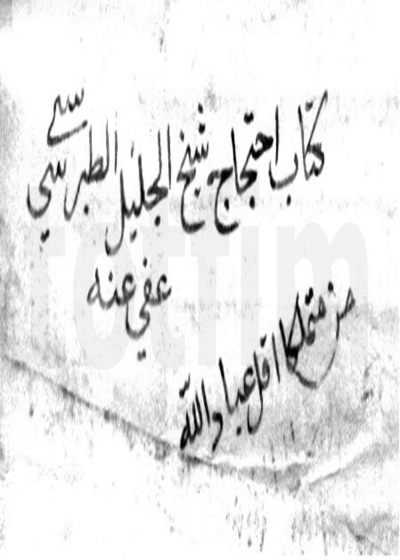 كتاب احتجاج شيخ الجليل الطبرسي
عفي عنه
من متملكات اقل عباد الله